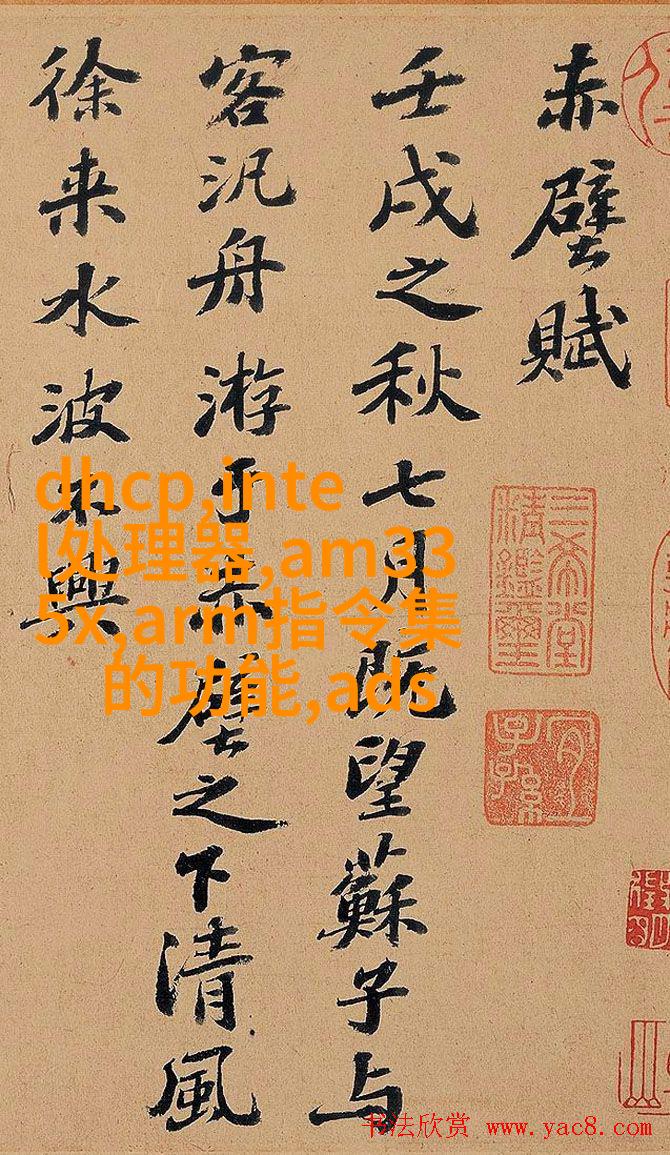 赤壁賦
壬戌之秋七月既望蘇子与
客汎舟游于赤壁之下清風
徐来水波不興
dhcp,inte
l处理器,am33
5x,arm指令集
的功能,ads
三希堂
精鑑璽
宜
子孫
书法欣赏 www.yac8.com